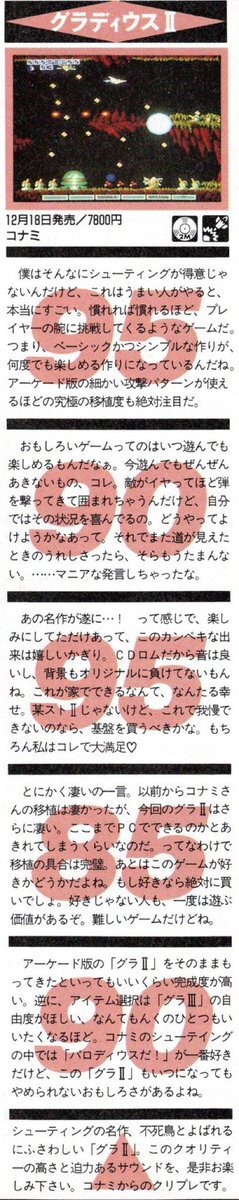 グラディウスⅡ
12月18日発売／7800円
コナミ
95
僕はそんなにシューティングが得意じゃ
ないんだけど、これはうまい人がやると、
本当にすごい。慣れれば慣れるほど、プレ
イヤーの腕に挑戦してくるようなゲームだ。
つまり、ベーシックかつシンプルな作りが、
何度でも楽しめる作りになっているんだね。
アーケード版の細かい攻撃パターンが使え
るほどの究極の移植度も絶対注目だ。
90
おもしろいゲームってのはいつ遊んでも
楽しめるもんだなぁ。今遊んでもぜんぜん
あきないもの、コレ。敵がイヤってほど弾
を撃ってきて囲まれちゃうんだけど、自分
ではその状況を喜んでるの。どうやってよ
けようかなあって、それでまた道が見えた
ときのうれしさったら、そらもうたまんな
い。……マニアな発言しちゃったな。
95
あの名作が遂に…！　って感じで、楽し
みにしてただけあって、このカンペキな出
来は嬉しいかぎり。ＣＤロムだから音は良
いし、背景もオリジナルに負けてないもん
ね。これが家でできるなんて、なんたる幸
せ。某ストⅡじゃないけど、これで我慢で
きないのなら、基盤を買うべきかな。もち
ろん私はコレで大満足♡
85
とにかく凄いの一言。以前からコナミさ
んの移植は凄かったが、今回のグラⅡはさ
らに凄い。ここまでＰＣでできるのかとあ
きれてしまうくらいなのだ。ってなわけで
移植の具合は完璧。あとはこのゲームが好
きかどうかだよね。もし好きなら絶対に買
いでしょ。好きじゃない人も、一度は遊ぶ
価値があるぞ。難しいゲームだけどね。
90
アーケード版の「グラⅡ」をそのままも
ってきたといってもいいくらい完成度が高
い。逆に、アイテム選択は「グラⅢ」の自
由度がほしい、なんてもんくのひとつもい
いたくなるほど。コナミのシューティング
の中では「パロディウスだ！」が一番好き
だけど、この「グラⅡ」もいつになっても
やめられないおもしろさがあるよね。
シューティングの名作、不死鳥とよばれる
にふさわしい「グラⅡ」。このクオリティ
ーの高さと迫力あるサウンドを、是非お楽
しみ下さい。コナミからのクリプレです。